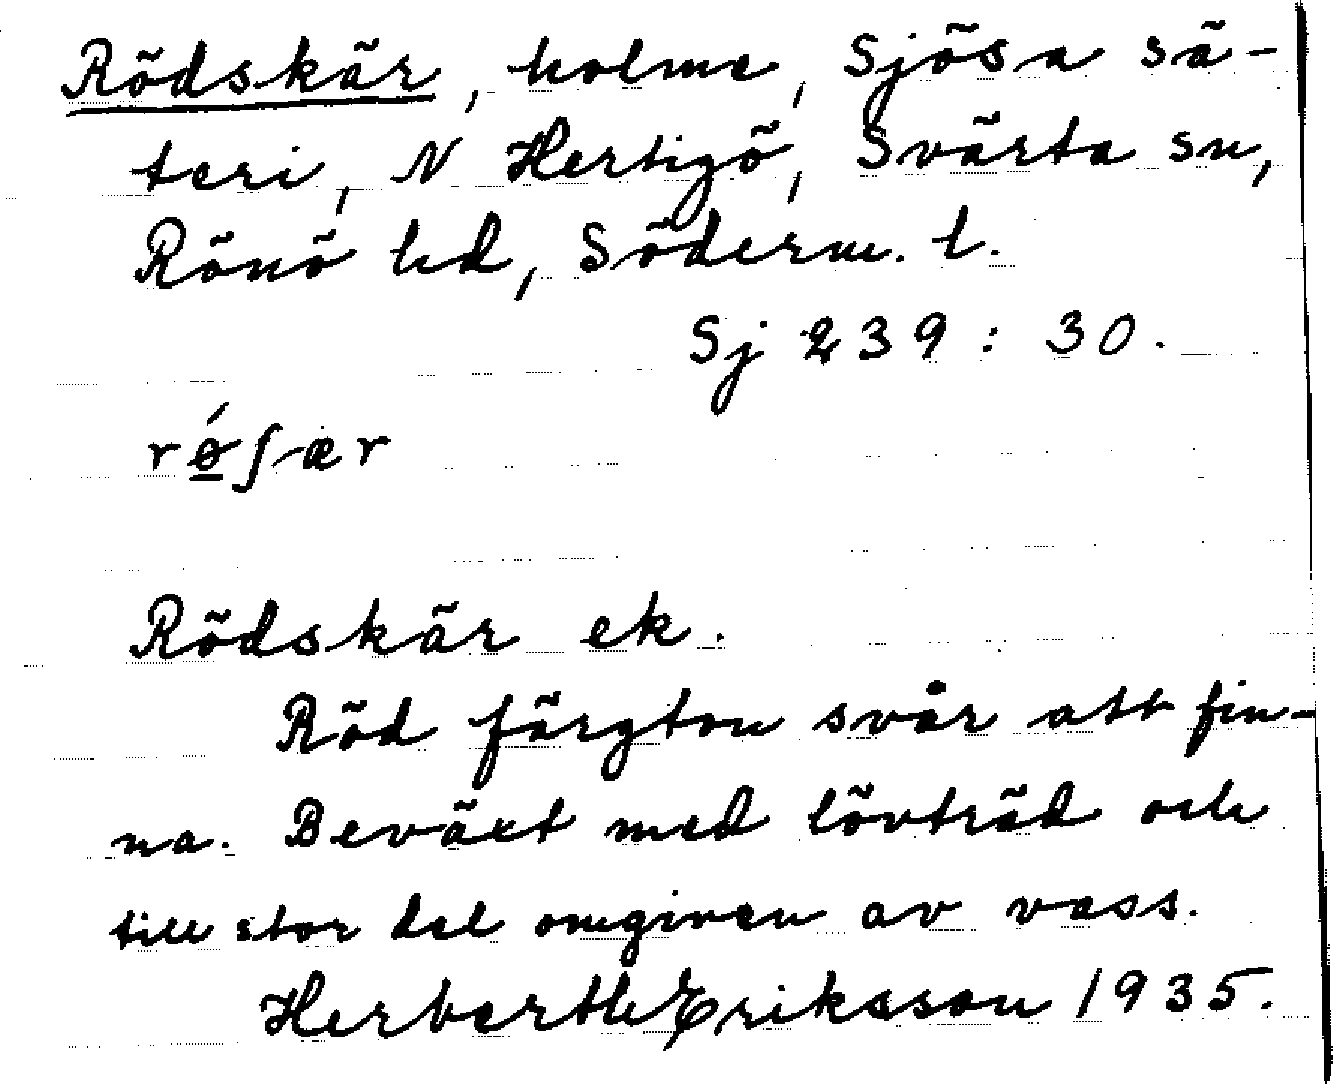 Rödskär, holme, Sjösa sä-
teri, N Hertigö, Svärta sn,
Rönö hd, Söderm. l.
Sj 239 : 30.
rǿʃær
Rödskär ek.
Röd färgton svår att fin-
na. Beväxt med lövträd och
till stor del omgiven av vass.
Herberth Eriksson 1935.